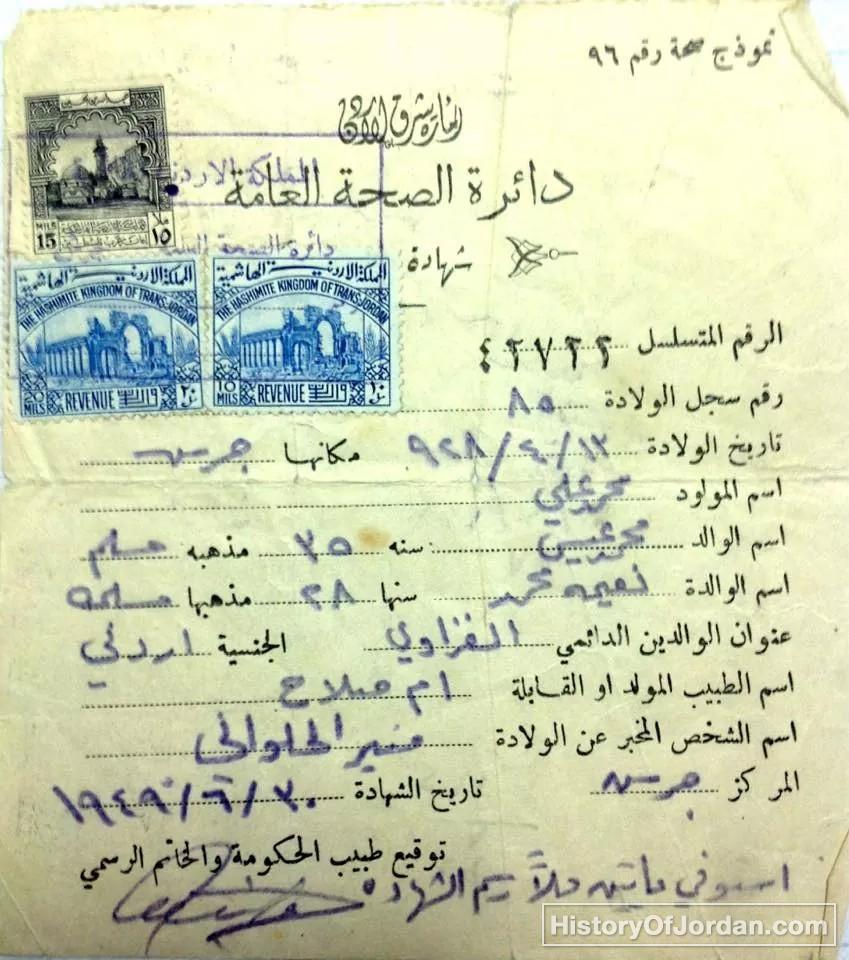 نموذج صحة رقم ٩٦
امارة شرق الاردن
المملكة الاردنية
دائرة الصحة العامة
دائرة الصحة
شهادة
MILS 15
ملا ١٥
المملكة الاردنية الهاشمية
THE HASHIMITE KINGDOM OF TRANSJORDAN
20 MILS REVENUE ٢٠
المملكة الاردنية الهاشمية
THE HASHIMITE KINGDOM OF TRANSJORDAN
10 MILS REVENUE ١٠
الرقم المتسلسل ٤٢٧٢٢
رقم سجل الولادة ٨٥
تاريخ الولادة ١٢/٤/٩٢٨ مكانها جرش
اسم المولود محمد علي
اسم الوالد محمد عيسى سنه ٣٥ مذهبه مسلم
اسم الوالدة نعيمه محمد سنها ٢٨ مذهبها مسلمه
عنوان الوالدين الدائمي الغزاوي الجنسية اردني
اسم الطبيب المولد او القابلة ام صلاح
اسم الشخص المخبر عن الولادة منير الحلواني
المركز جرش تاريخ الشهادة ٣٠/٦/١٩٤٩
توقيع طبيب الحكومة والخاتم الرسمي
استوفي مايتين ملاً رسم الشهادة
HistoryOfJordan.com